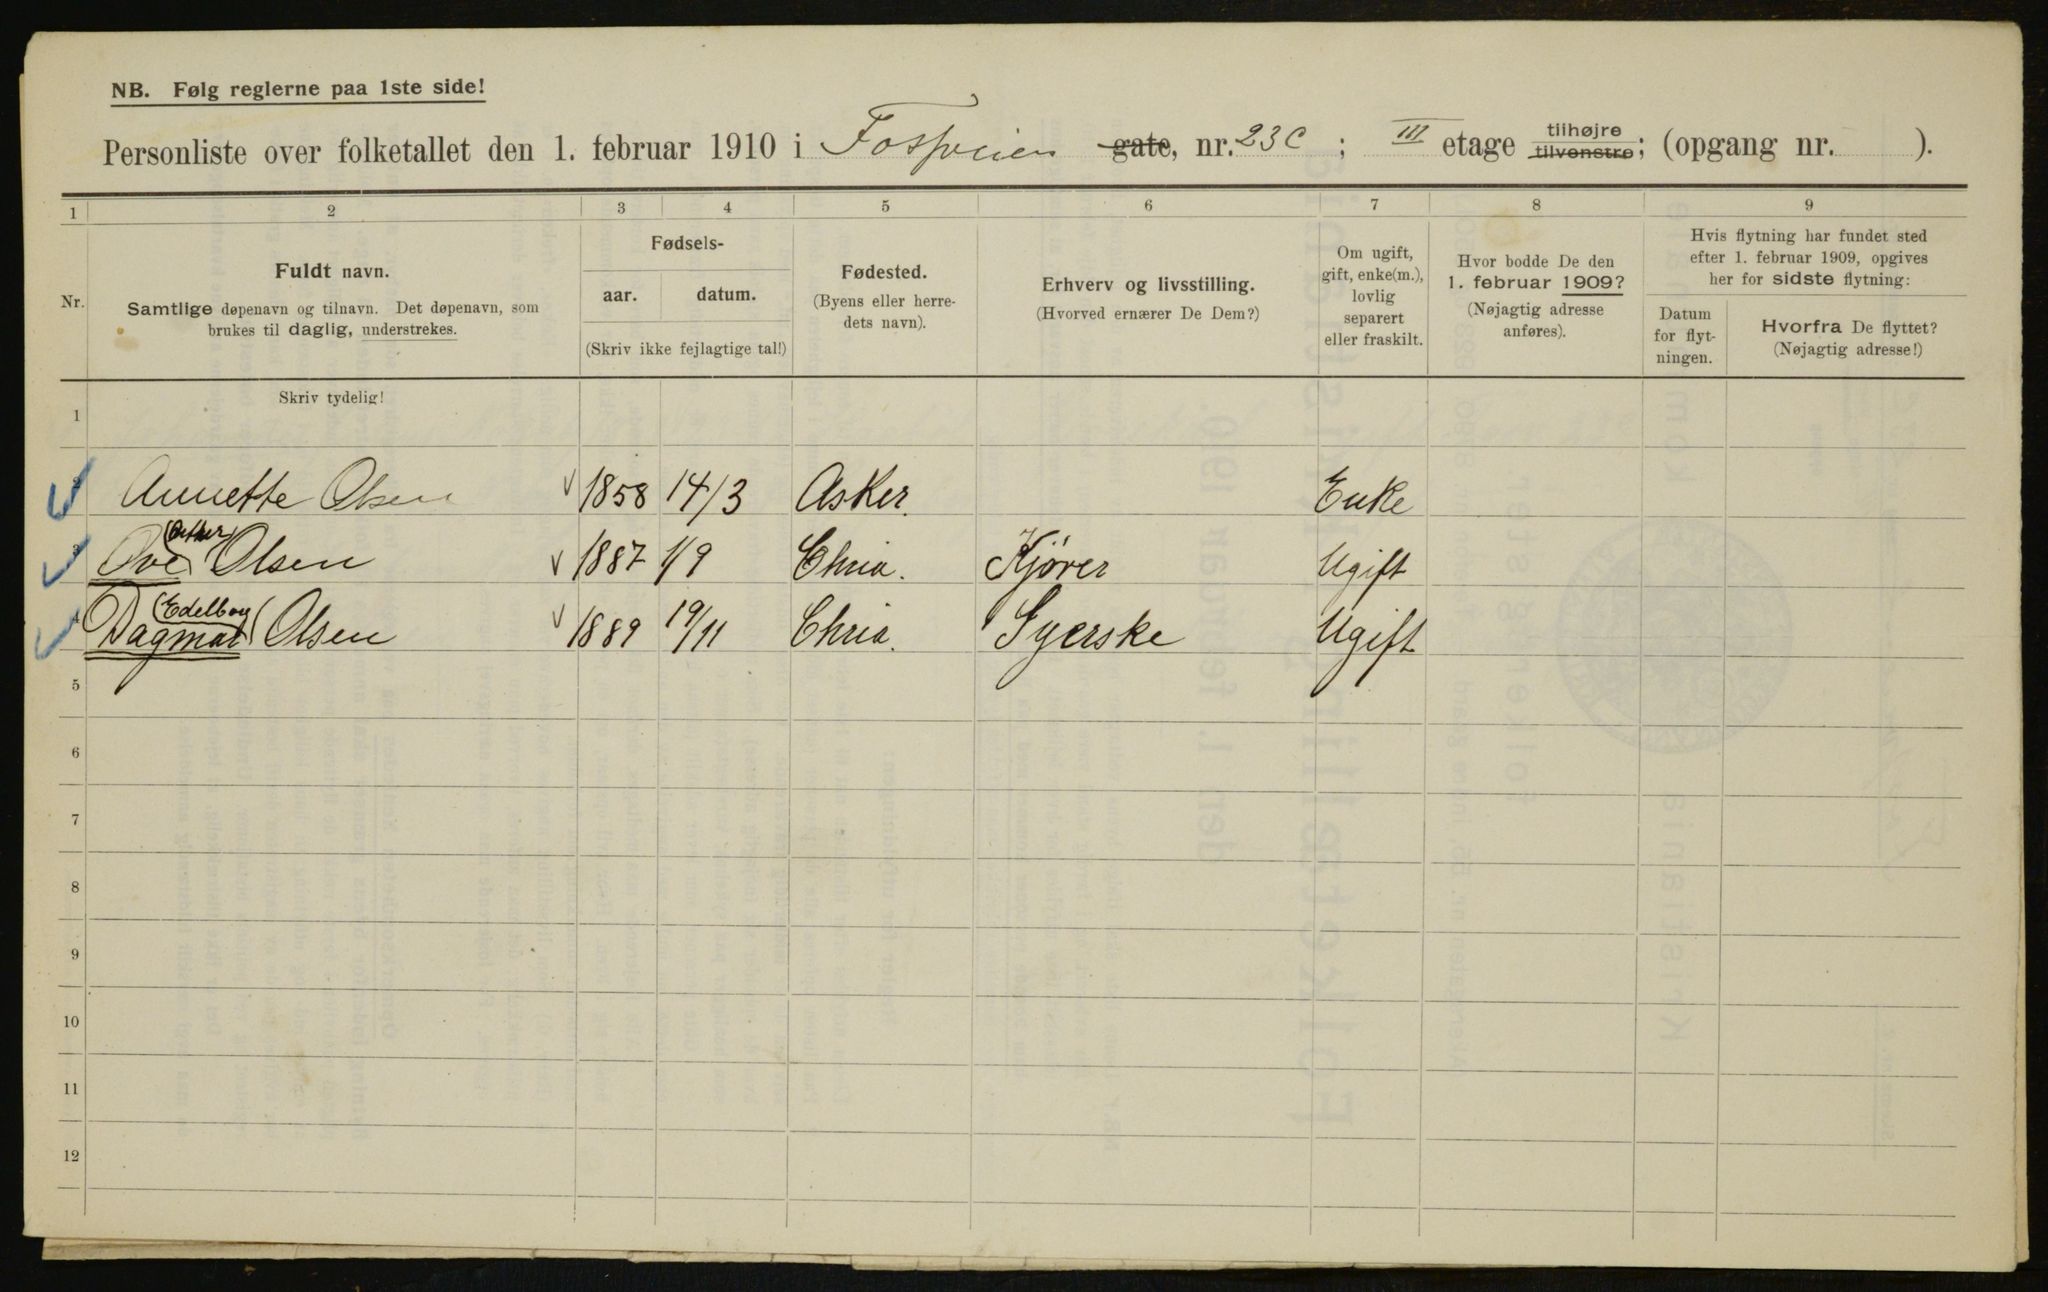 NB. Følg reglerne paa 1ste side!
Personliste over folketallet den 1. februar 1910 i Fossveien gate, nr. 23 C ; III etage tilhøjre tilvenstre; (opgang nr. ).
1 2 3 4 5 6 7 8 9
Nr.
Fuldt navn.
Samtlige døpenavn og tilnavn. Det døpenavn, som
brukes til daglig, understrekes.
Fødsels-
aar. datum.
(Skriv ikke fejlagtige tal!)
Fødested.
(Byens eller herre-
dets navn).
Erhverv og livsstilling.
(Hvorved ernærer De Dem?)
Om ugift,
gift, enke(m.),
lovlig
separert
eller fraskilt.
Hvor bodde De den
1. februar 1909?
(Nøjagtig adresse
anføres).
Hvis flytning har fundet sted
efter 1. februar 1909, opgives
her for sidste flytning:
Datum
for flyt-
ningen.
Hvorfra De flyttet?
(Nøjagtig adresse!)
Skriv tydelig!
1
2 Annette Olsen 1858 14/3 Asker. Enke
3 Ove (Arthur) Olsen 1887 1/9 Chria. Kjører Ugift
4 Dagmar (Edelborg) Olsen 1889 19/11 Chria. Syerske Ugift
5
6
7
8
9
10
11
12